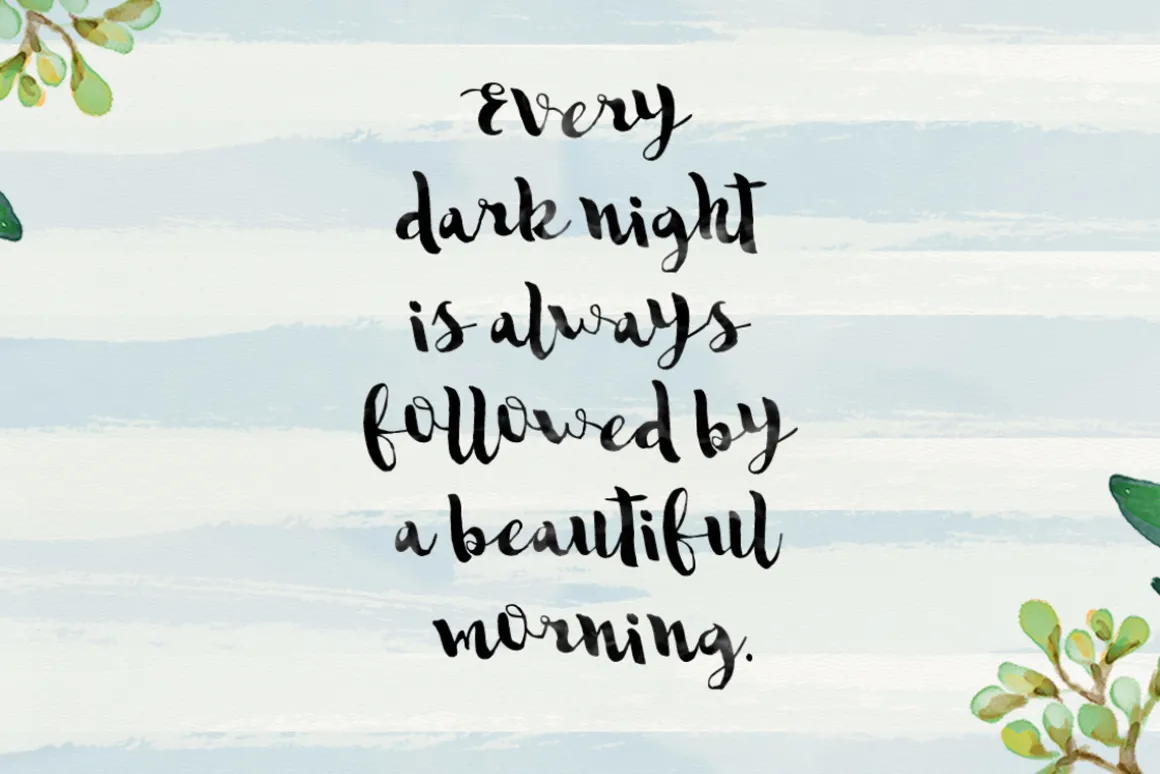 Every
dark night
is always
followed by
a beautiful
morning.